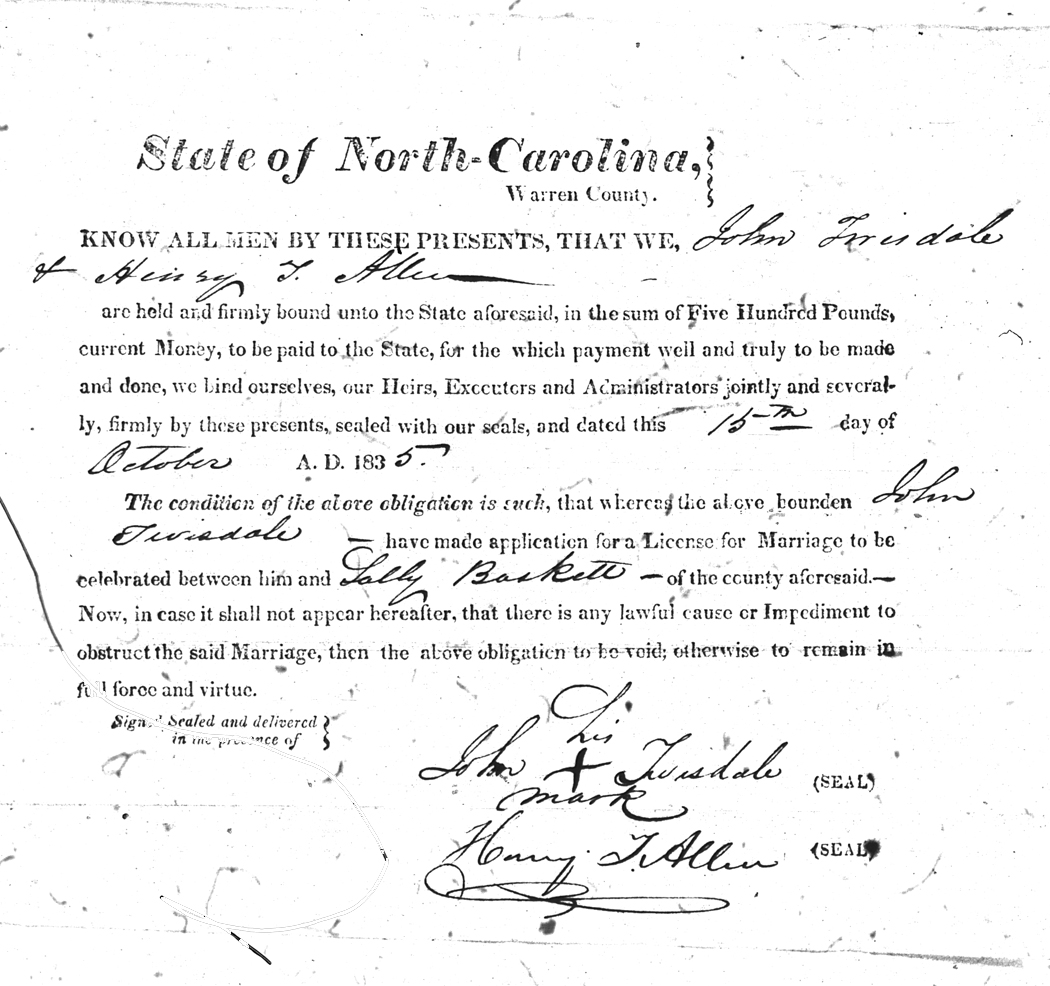 State of North-Carolina,
Warren County.
KNOW ALL MEN BY THESE PRESENTS, THAT WE, John Twisdale
& Henry T. Allen
are held and firmly bound unto the State aforesaid, in the sum of Five Hundred Pounds,
current Money, to be paid to the State, for the which payment well and truly to be made
and done, we bind ourselves, our Heirs, Executors and Administrators jointly and several-
ly, firmly by these presents, sealed with our seals, and dated this 15th day of
October A. D. 1835.
The condition of the above obligation is such, that whereas the above bounden John
Twisdale — have made application for a License for Marriage to be
celebrated between him and Sally Baskett — of the county aforesaid.—
Now, in case it shall not appear hereafter, that there is any lawful cause or Impediment to
obstruct the said Marriage, then the above obligation to be void; otherwise to remain in
full force and virtue.
Signed Sealed and delivered
in the presence of
his
John + Twisdale (SEAL)
mark
Henry T. Allen (SEAL)